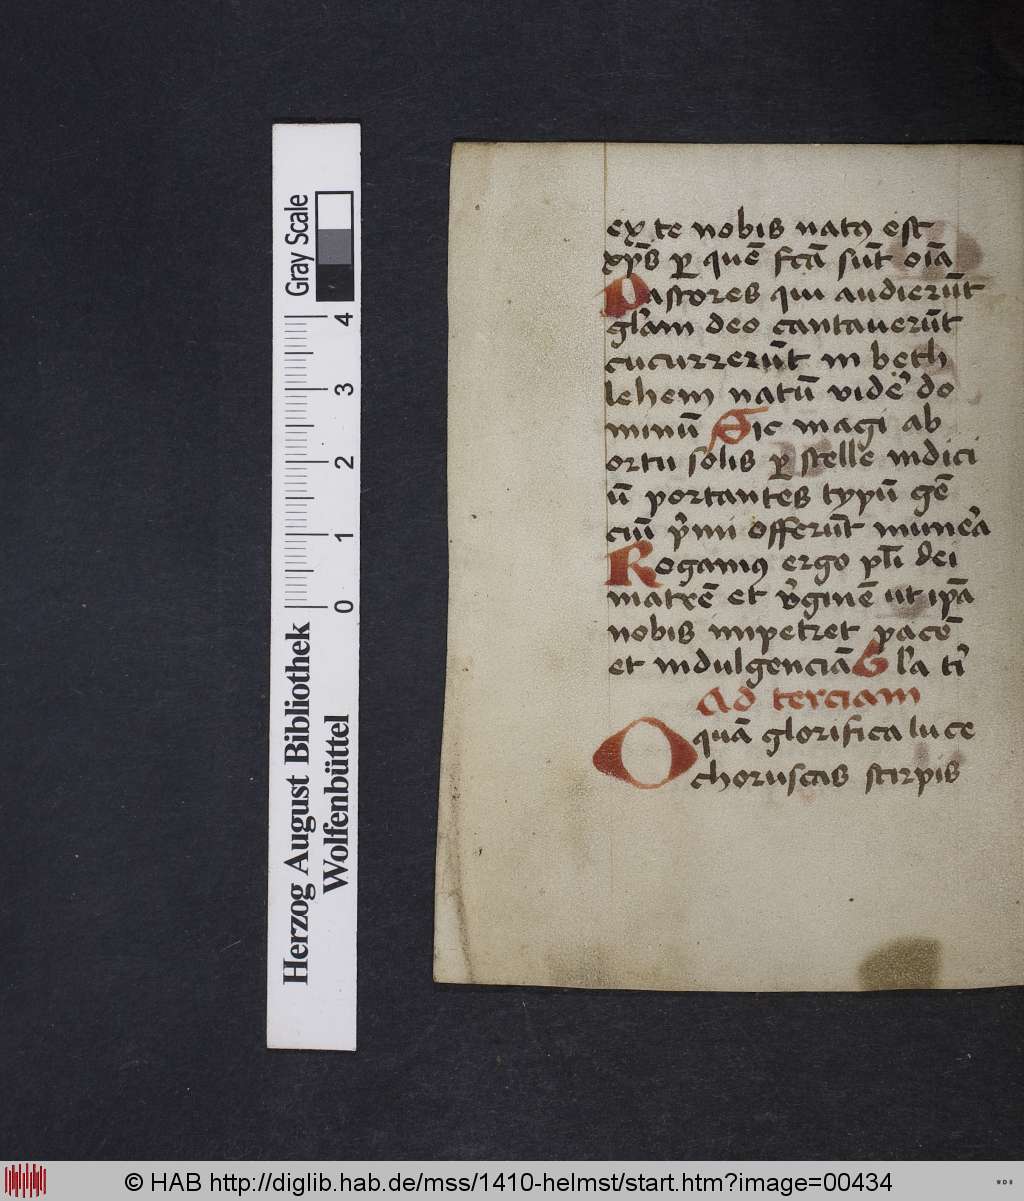 ex te nobis natꝰ est
xp̄s ꝑ quē fc̄a sūt oīa
Pastores qui audierūt
gl̓am deo cantauerūt
cucurrerūt in beth
lehem natū vider̄ do
minū Sic magi ab
ortu solis ꝑ stelle indici
ū portantes typū gē
ciū p̓mi offerūt mune̓a
Rogamꝰ ergo pl̄i dei
matrē et v̓ginē ut ip̄a
nobis impetret pacē
et indulgenciā Gl̓a ti̓
Ad terciam
O quā glorifica luce
choruscas stirpis
Gray Scale
4
3
2
1
0
Herzog August Bibliothek
Wolfenbüttel
© HAB http://diglib.hab.de/mss/1410-helmst/start.htm?image=00434